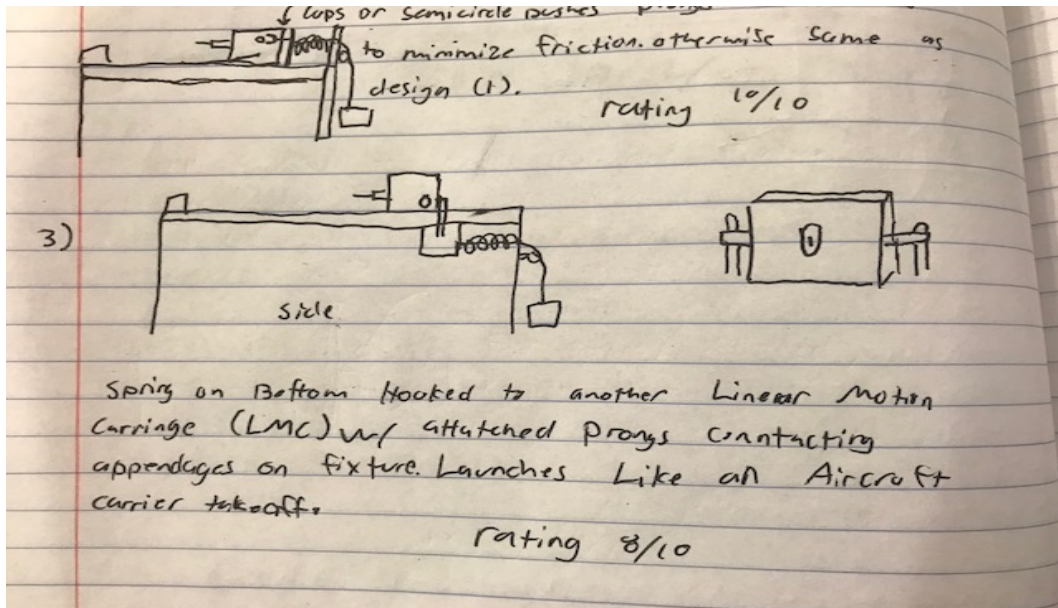 cups or semicircle pushes
to minimize friction. otherwise same as
design (1).
rating 10/10
3)
side
Spring on Bottom Hooked to another Linear Motion
Carringe (LMC) w/ attatched Prongs conntacting
appendages on fixture. Launches Like an Aircraft
carrier takeoff.
rating 8/10